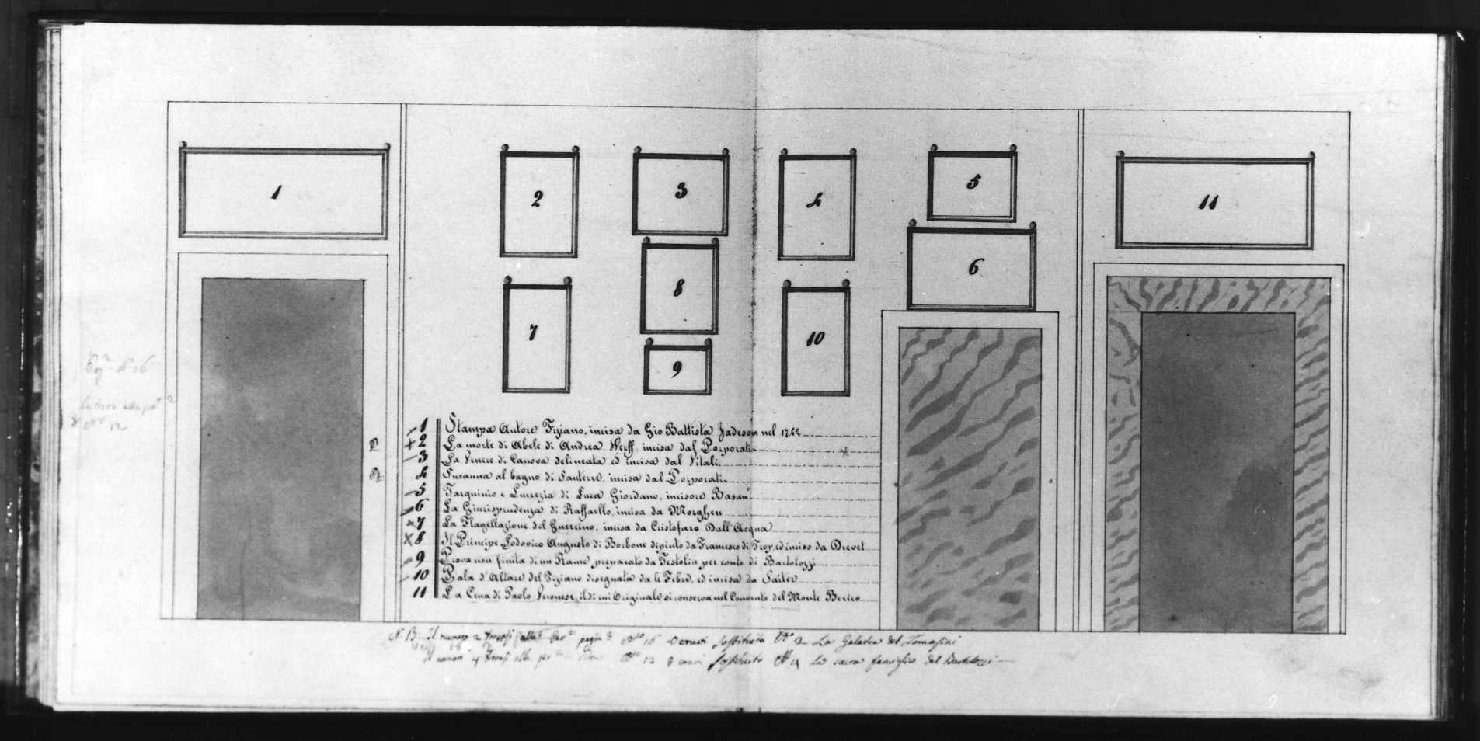 1
2
3
4
5
6
7
8
9
10
11
1 Stampa Autore Tiziano, incisa da Gio Battista Jackson nel
2 La morte di Abele di Andrea Werff, incisa dal Porporati
3 La Venere di Canova delineata ed incisa dal Vitali
4 Susanna al bagno di Santerre, incisa dal Porporati
5 Tarquinio e Lucrezia di Luca Giordano, incisore Basan
6 La Giurisprudenza di Raffaello, incisa da Morghen
7 La Flagellazione del Guercino, incisa da Cristofaro Dall'Acqua
8 Il Principe Lodovico Augusto di Borbone dipinto da Francesco di Troy, ed inciso da Drevet
9 Prova non finita di un Rame, preparato da Testolin per conto di Bartolozzi
10 Pala d'Altare del Tiziano disegnata da le Febre, ed incisa da
11 La Cena di Paolo Veronese, il di cui Originale si conserva nel Convento del Monte Berico
N. B. Il numero 2 pagina 16 sostituito La Galatea del
Il numero 4 12 sostituito La sacra famiglia del Bartolozzi